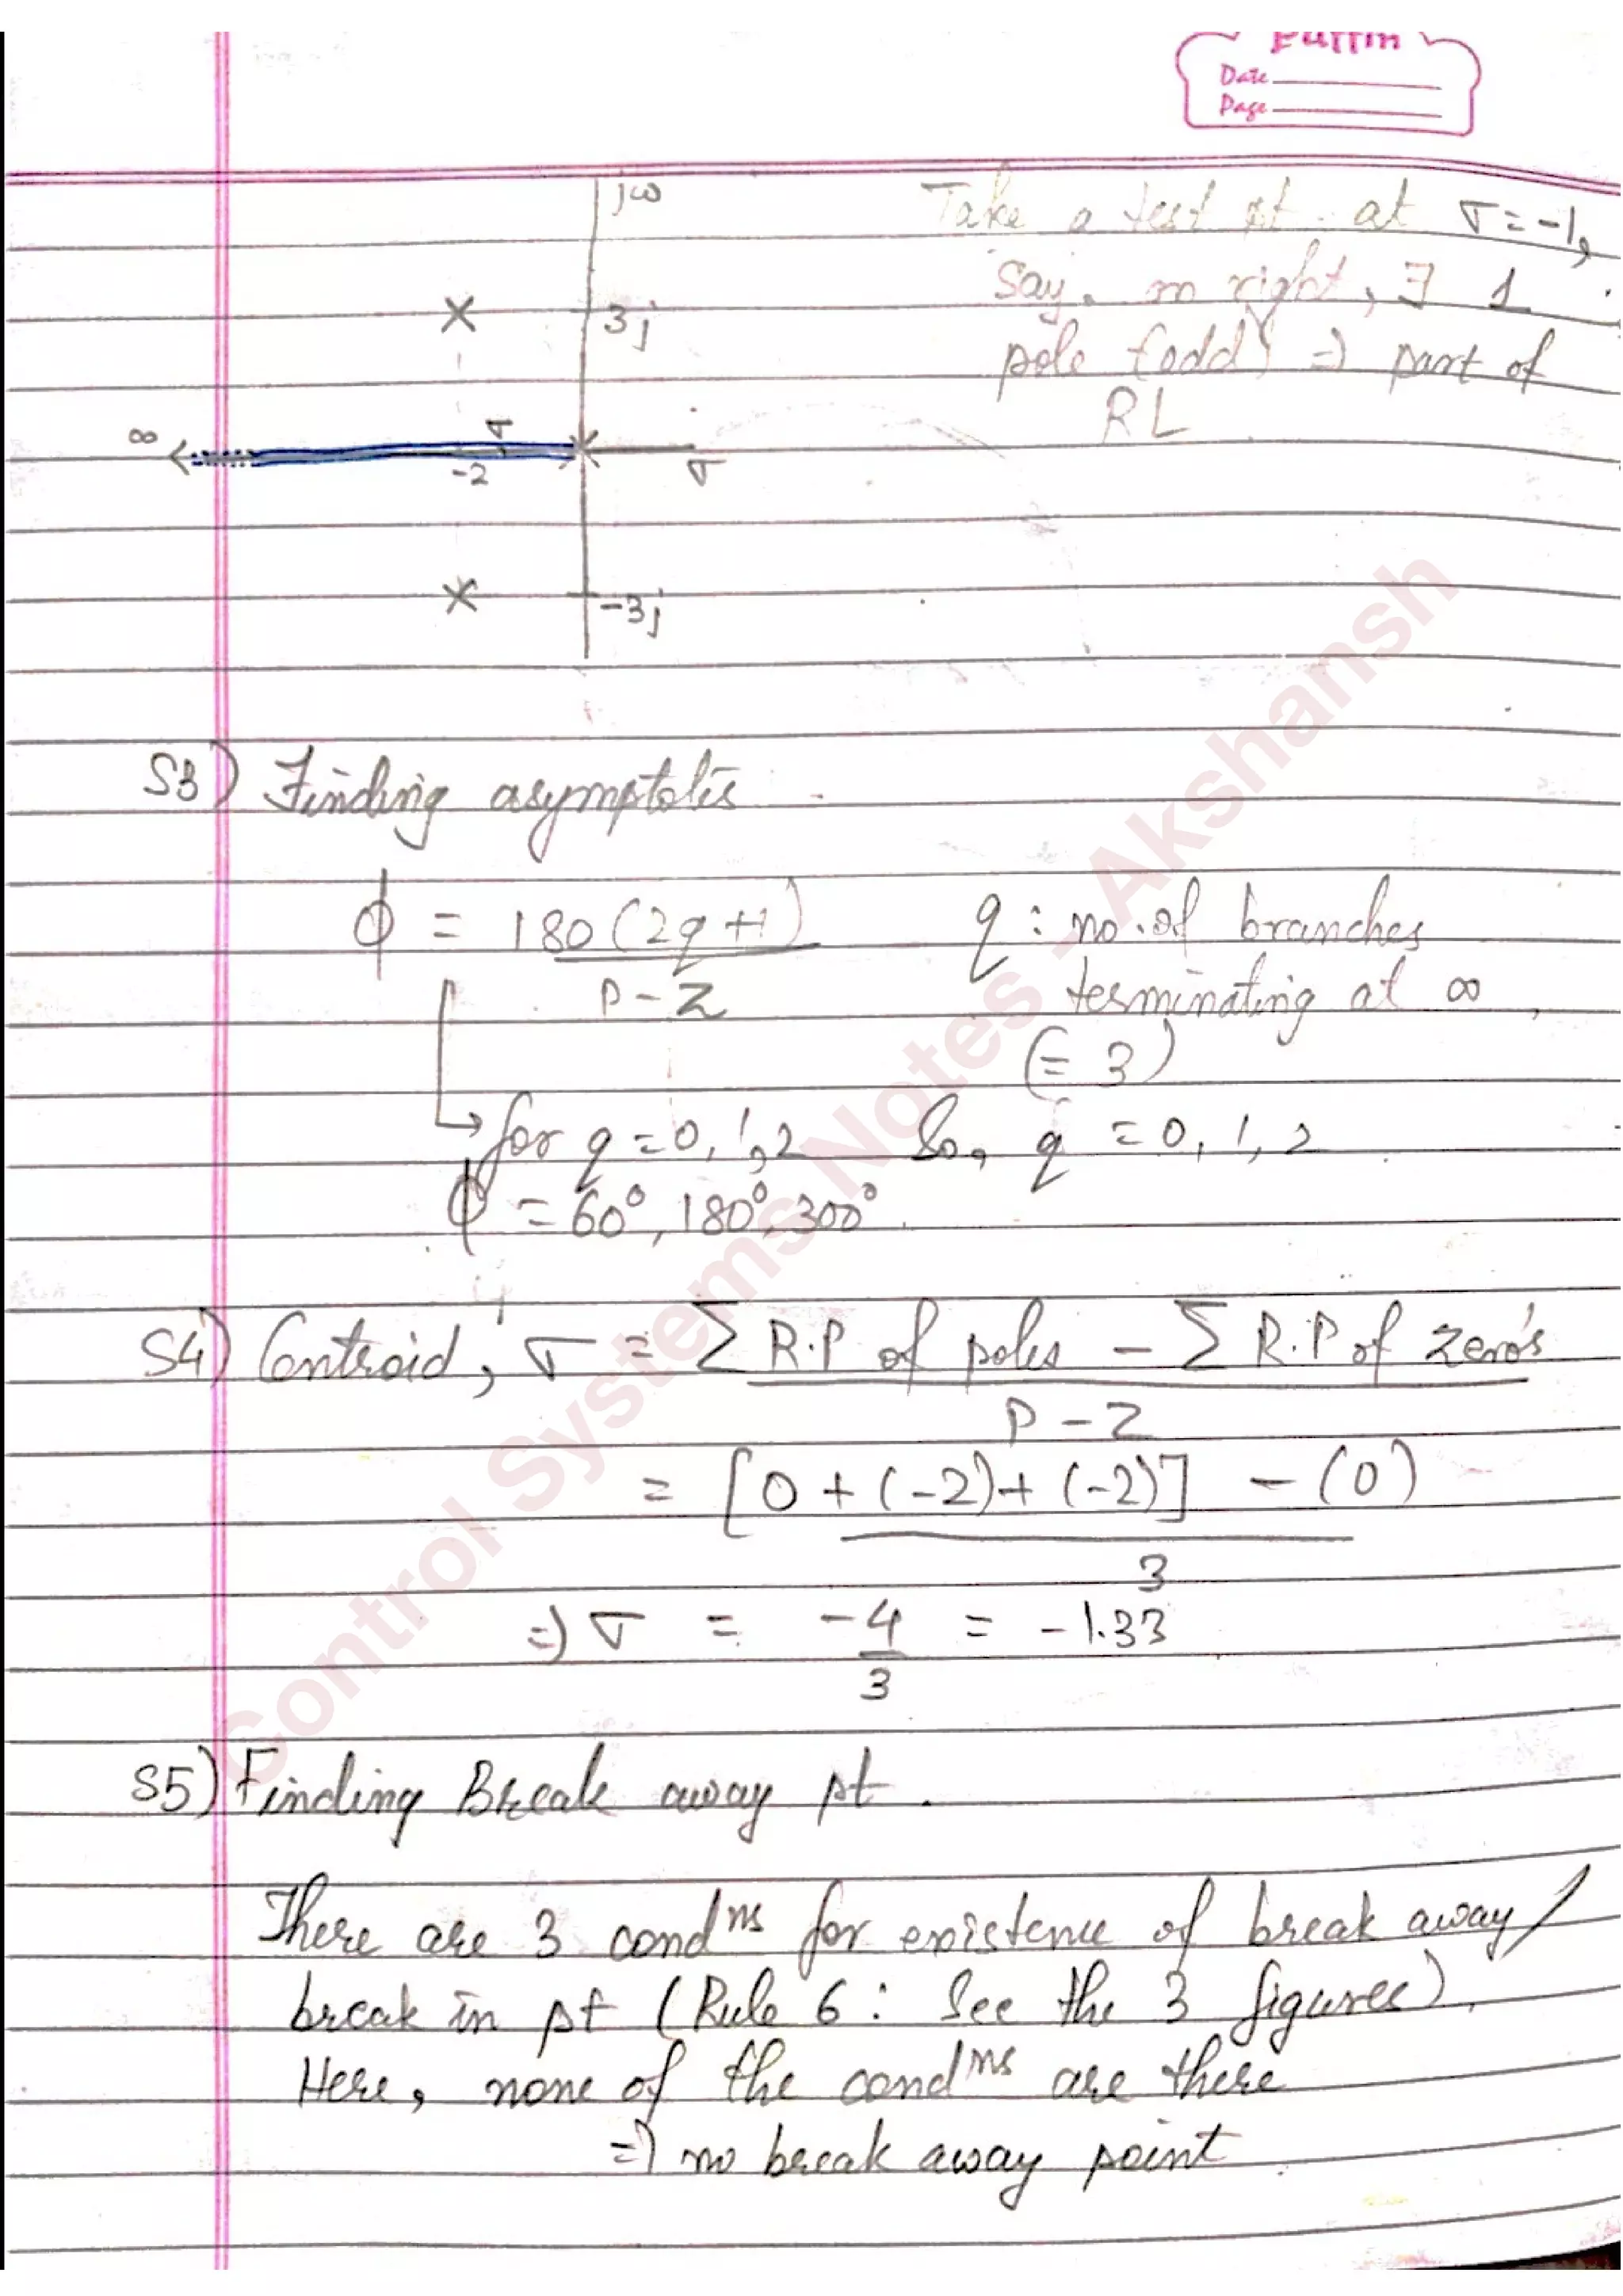 Puffin
Date
Page
jω
Take a test pt. at σ = -1,
say. on right, ∃ 1
3j
pole (odd) => part of
RL
∞
σ
-2
σ
-3j
S3) Finding asymptotes
ϕ = 180(2q+1)
P - Z
q : no. of branches
terminating at ∞
(= 3)
for q = 0, 1, 2 So, q = 0, 1, 2
ϕ = 60°, 180°, 300°
S4) Centroid, σ = Σ R.P of poles - Σ R.P of zero's
P - Z
= [0 + (-2) + (-2)] - (0)
3
=> σ = -4 = -1.33
3
S5) Finding Break away pt.
There are 3 condns for existence of break away/
break in pt (Rule 6 : See the 3 figures).
Here, none of the condns are there
=> no break away point
Control Systems Notes - Akshansh